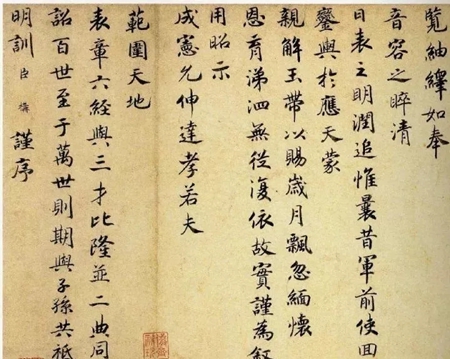 覽紬繹如奉
音容之睟清
日表之明潤追惟曩昔軍前使回
鑾輿於應天蒙
親解玉帶以賜歲月飄忽緬懷
恩育涕泗無從復依故實謹為叙
用昭示
成憲允伸達孝若夫
範圍天地
表章六經與三才比隆並二典同
詔百世至于萬世則期與子孫共祗
明訓臣構謹序